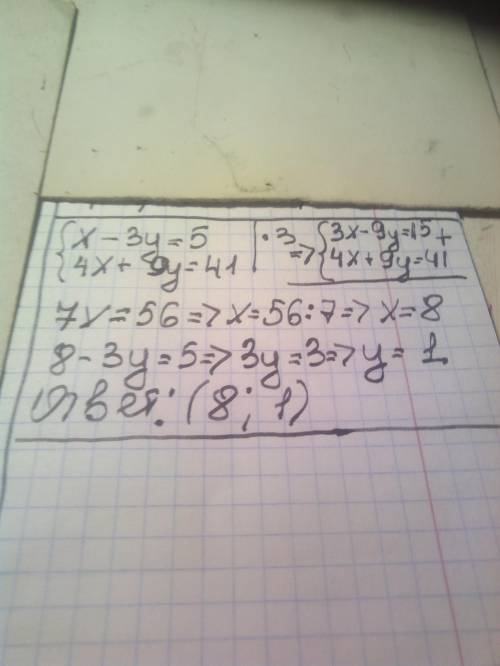 {x - 3y = 5 | · 3 => {3x - 9y = 15 +
{4x + 9y = 41 | {4x + 9y = 41
7x = 56 => x = 56 : 7 => x = 8
8 - 3y = 5 => 3y = 3 => y = 1
Ответ: (8; 1)